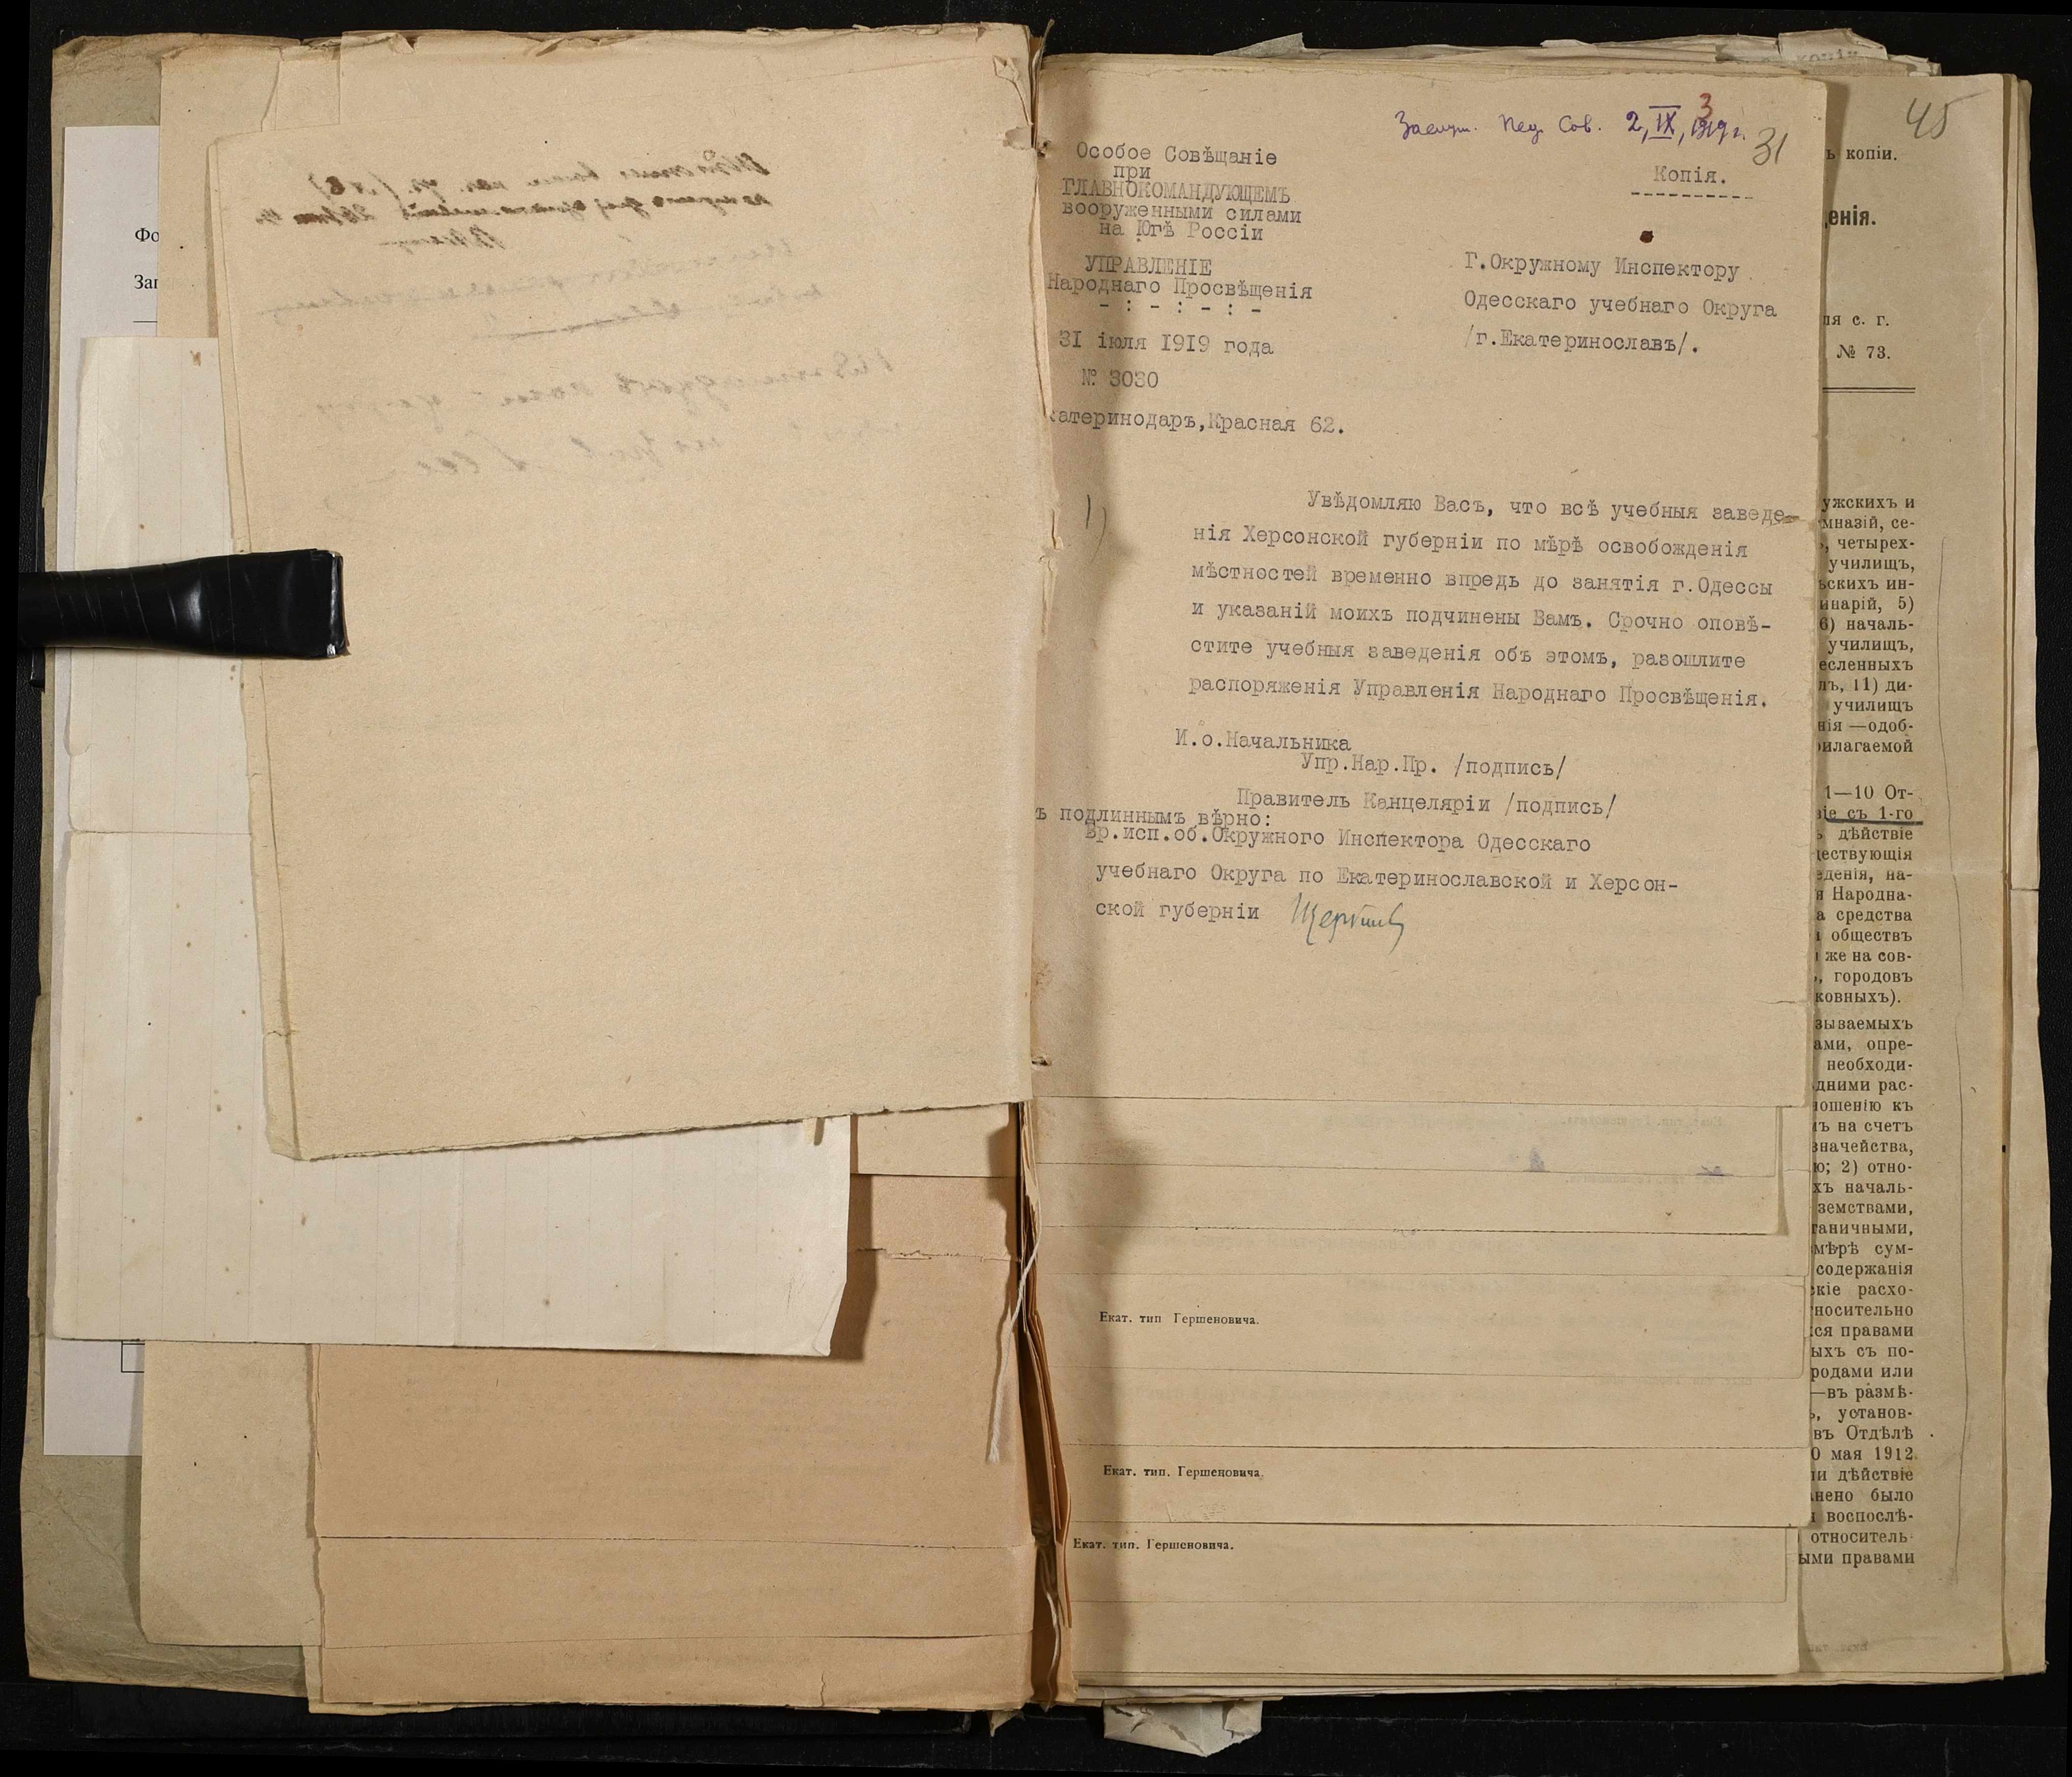 Фо
Заслуш. Пед. Сов. 2, IX, 1919 г.
3
31
45
Особое Совѣщаніе
при
ГЛАВНОКОМАНДУЮЩЕМЪ
вооруженными силами
на Югѣ Россіи
УПРАВЛЕНІЕ
Народнаго Просвѣщенія
- : - : - : -
31 іюля 1919 года
№ 3030
катеринодаръ,Красная 62.
Копія.
Г.Окружному Инспектору
Одесскаго учебнаго Округа
/г.Екатеринославъ/.
1)
Увѣдомляю Васъ, что всѣ учебныя заведе-
нія Херсонской губерніи по мѣрѣ освобожденія
мѣстностей временно впредь до занятія г.Одессы
и указаній моихъ подчинены Вамъ. Срочно оповѣ-
стите учебныя заведенія объ этомъ, разошлите
распоряженія Управленія Народнаго Просвѣщенія.
И.о.Начальника
Упр.Нар.Пр. /подпись/
Правитель Канцеляріи /подпись/
ъ подлиннымъ вѣрно:
Вр.исп.об.Окружного Инспектора Одесскаго
учебнаго Округа по Екатеринославской и Херсон-
ской губерніи
Екат. тип Гершеновича.
Екат. тип. Гершеновича.
Екат. тип. Гершеновича.
ь копіи.
енія.
ля с. г.
№ 73.
ужскихъ и
мназій, се-
, четырех-
училищъ,
ьскихъ ин-
инарій, 5)
6) началь-
училищъ,
есленныхъ
лъ, 11) ди-
училищъ
нія —одоб-
рилагаемой
1—10 От-
віе съ 1-го
ь дѣйствіе
цествующія
еденія, на-
я Народна-
а средства
и обществъ
же на сов-
, городовъ
ковныхъ).
зываемыхъ
ами, опре-
необходи-
дними рас-
ношенію къ
ъ на счетъ
значейства,
ю; 2) отно-
хъ началь-
земствами,
таничными,
мѣрѣ сум-
содержанія
скіе расхо-
тносительно
ся правами
ыхъ съ по-
родами или
—въ размѣ-
ь, установ-
въ Отдѣлѣ
0 мая 1912
ли дѣйствіе
нено было
воспослѣ-
относитель-
ыми правами